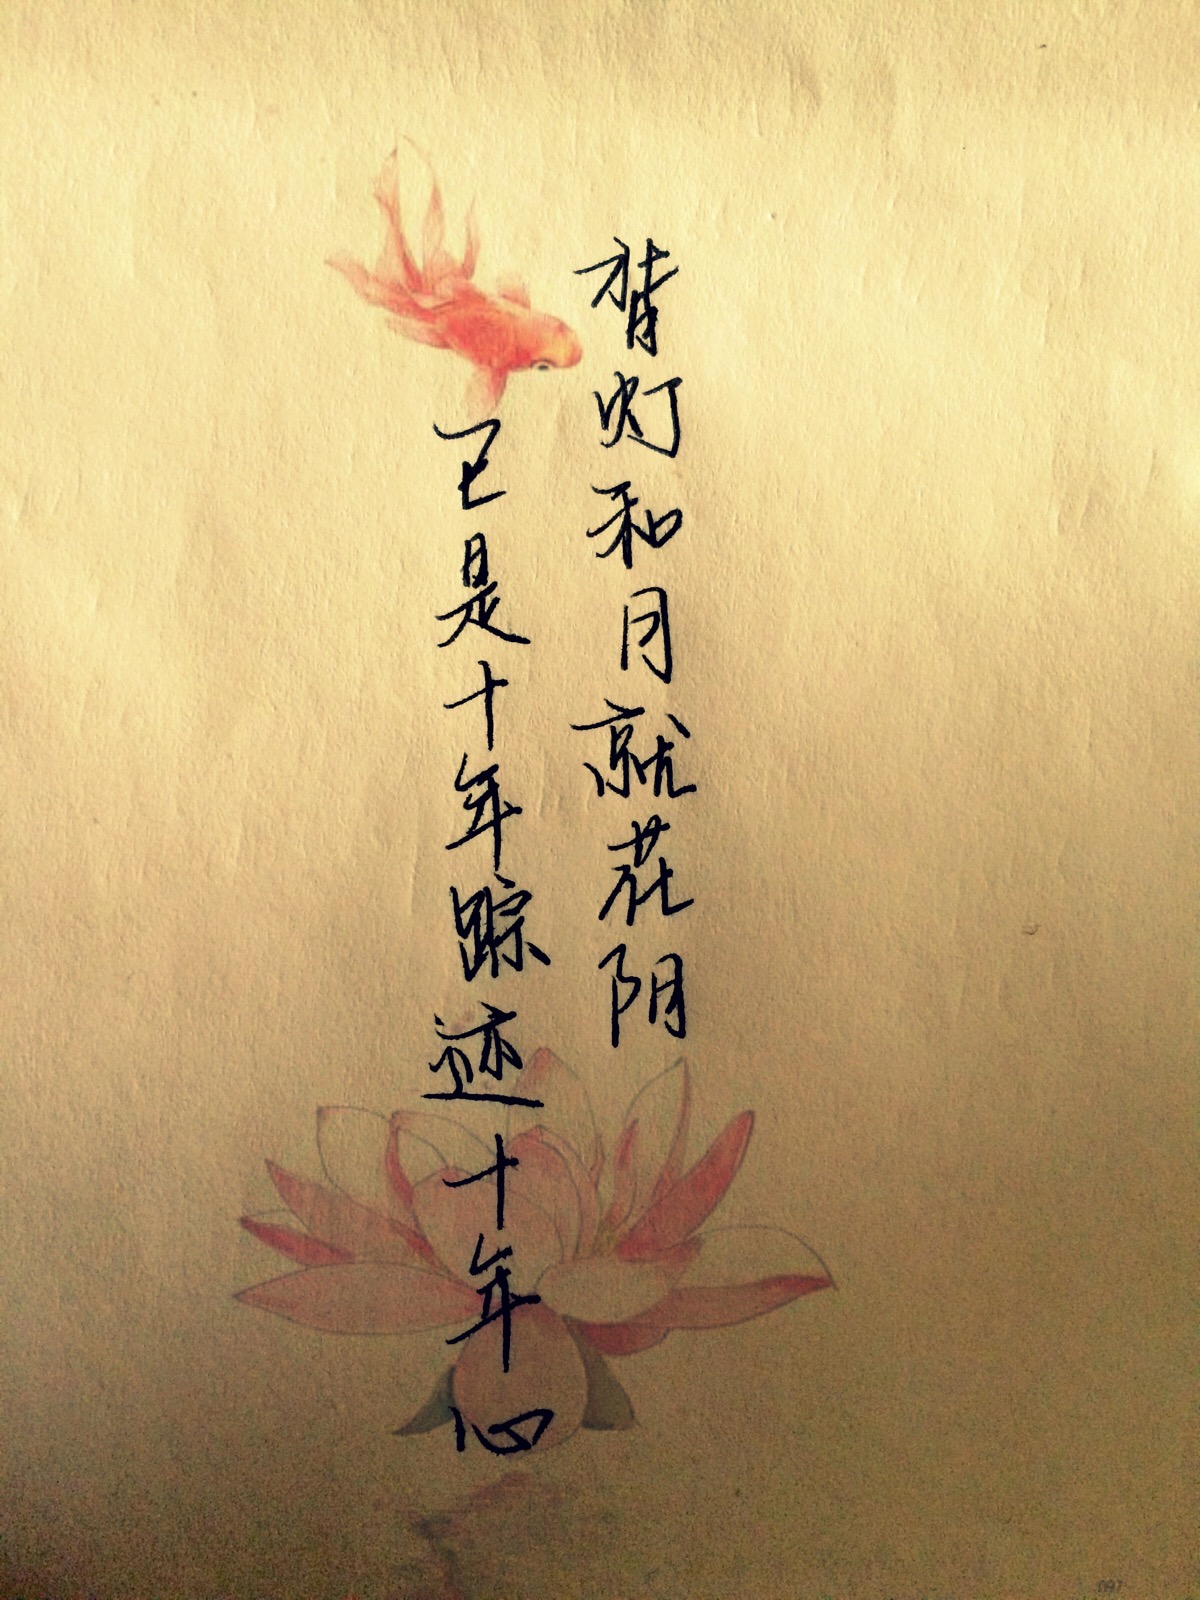 背灯和月就花阴
已是十年踪迹十年心
097